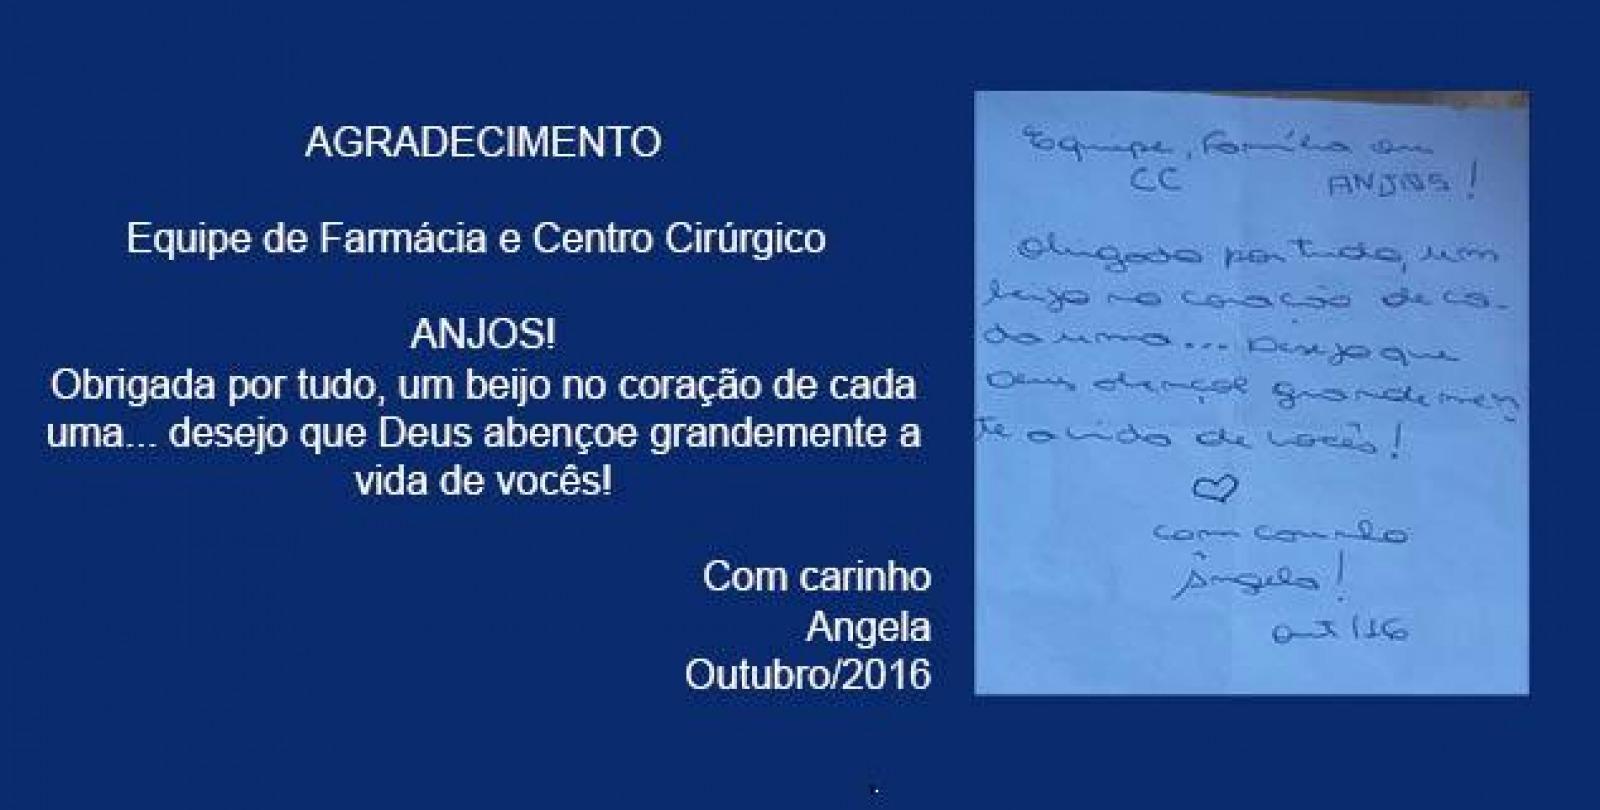 AGRADECIMENTO
Equipe de Farmácia e Centro Cirúrgico
ANJOS!
Obrigada por tudo, um beijo no coração de cada
uma... desejo que Deus abençoe grandemente a
vida de vocês!
Com carinho
Angela
Outubro/2016
Equipe, Família ou
CC ANJOS!
Obrigada por tudo, um
beijo no coração de ca-
da uma... Desejo que
Deus abençoe grandemen-
te a vida de vocês!
com carinho
Ângela!
out/16